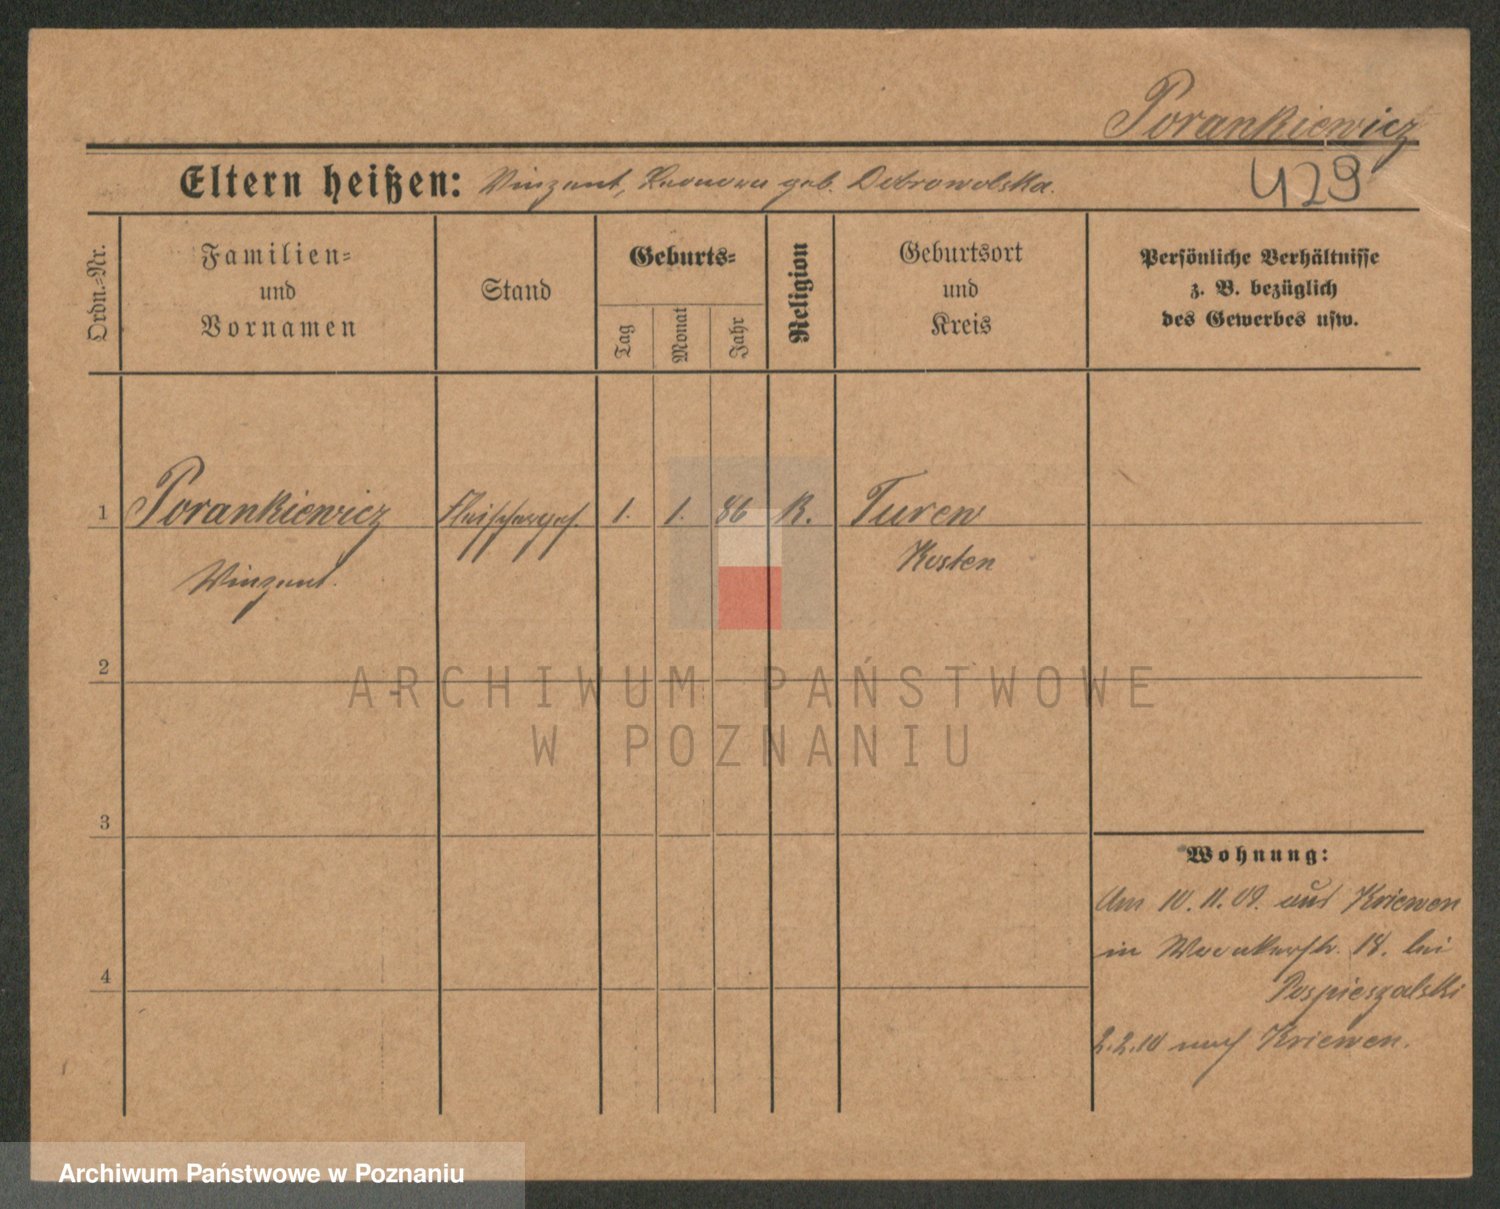 Porankiewicz
429
Eltern heißen: Vinzent, geb. Dobrowolska.
Ordn.-Nr.
Familien-
und
Vornamen
Stand
Geburts-
Tag
Monat
Jahr
Religion
Geburtsort
und
Kreis
Persönliche Verhältnisse
z. B. bezüglich
des Gewerbes usw.
1 Porankiewicz Fleischerges. 1. 1. 86 K. Turew
Vinzent. Kosten
2
3
4
Wohnung:
Am 10.11.09. aus Kriewen
in 18. bei
Pospieszalski
2.2.10 nach Kriewen.
ARCHIWUM PAŃSTWOWE
W POZNANIU
Archiwum Państwowe w Poznaniu